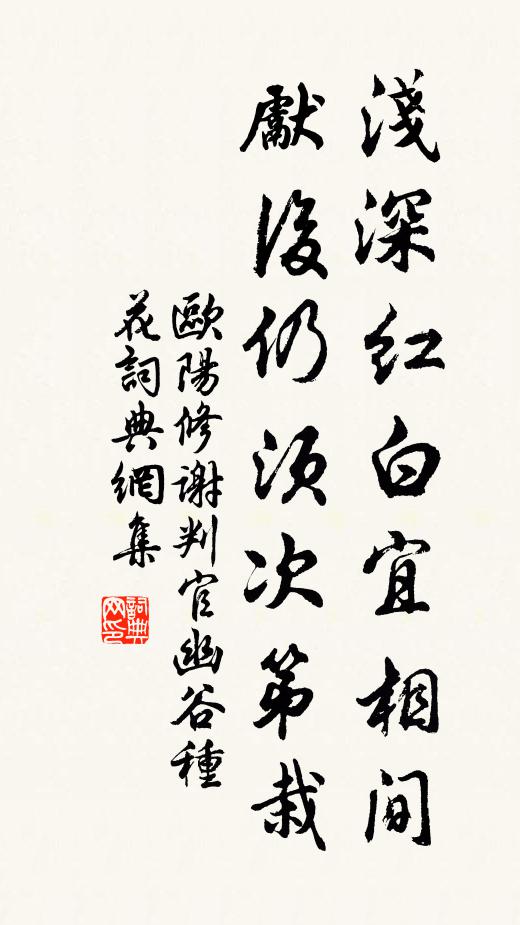 淺深紅白宜相間
獻後仍須次第栽
歐陽修謝判官幽谷種
花詞典網集
詞典
网印